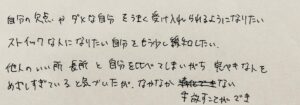 自分の欠点やダメな自分をうまく受け入れられるようになりたい
ストイックな人になりたい自分をもう少し緩和したい。
他人のいい所・長所と自分を比べてしまいがち 完ぺきな人を
めざしすぎていると気づいたが、なかなか ない
手放すことができ